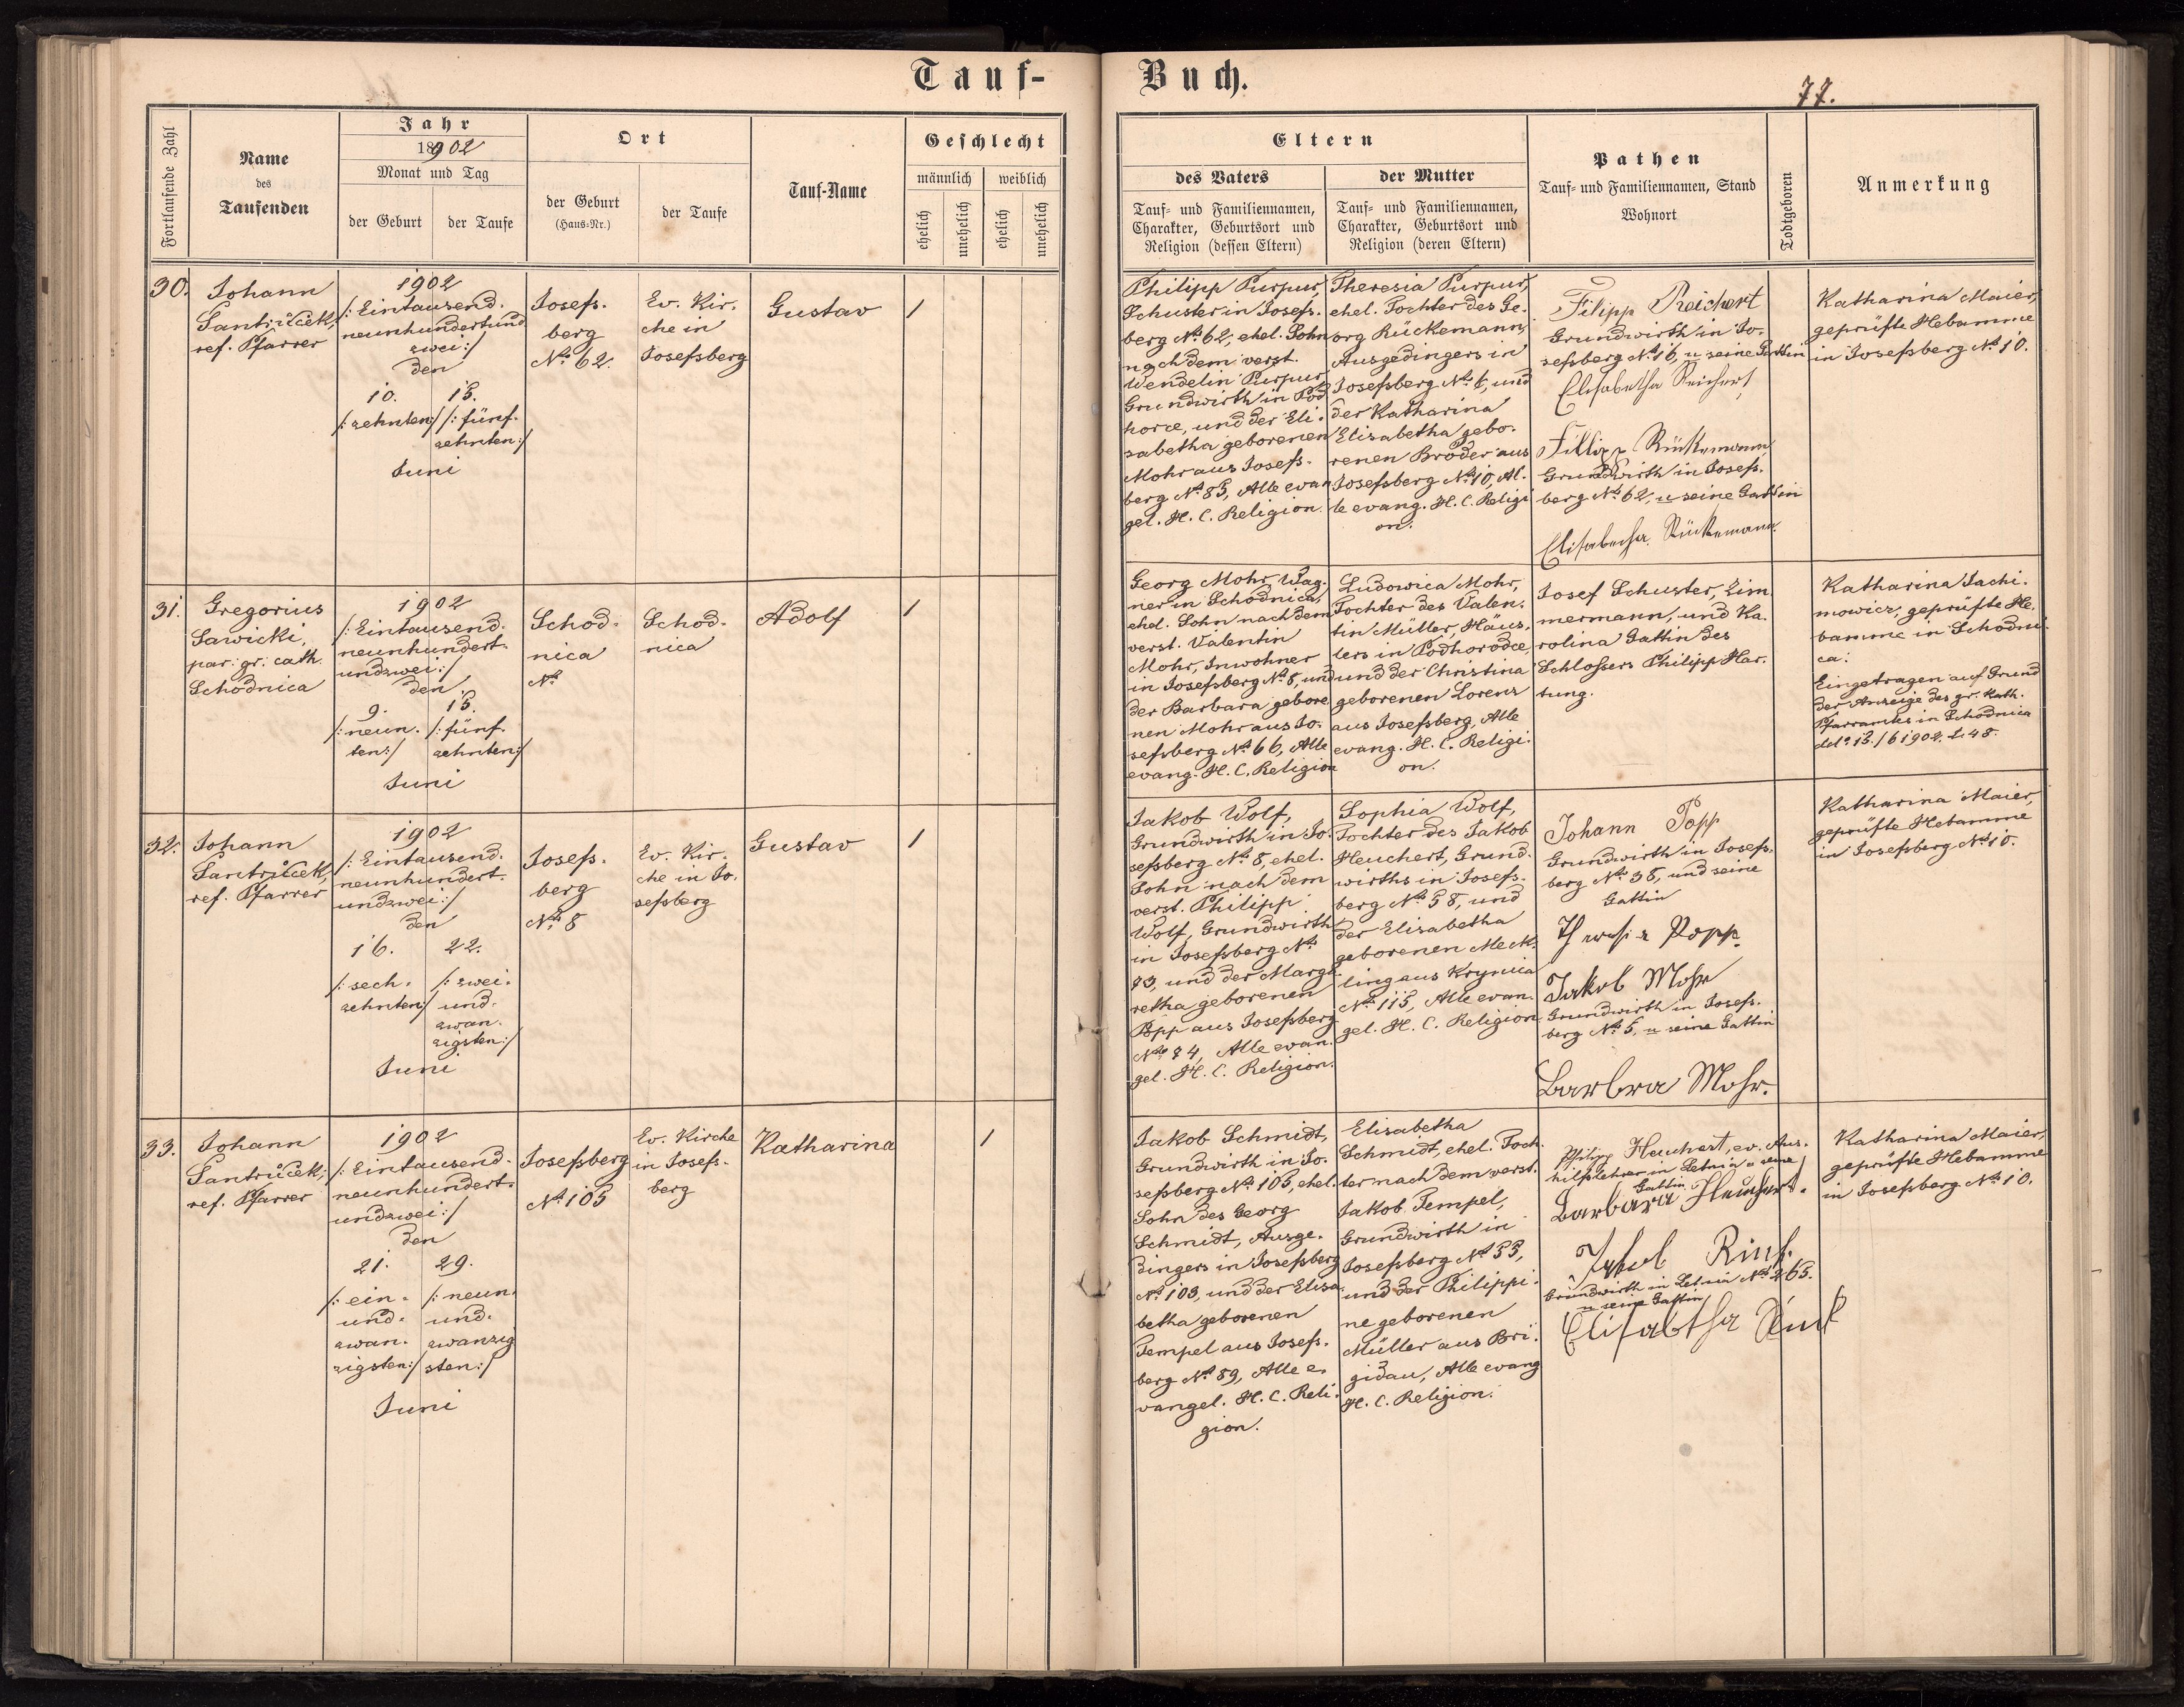 Tauf-
Buch.
77.
Fortlaufende Zahl
Name
des
Taufenden
Jahr
18902
Monat und Tag
der Geburt
der Taufe
Ort
der Geburt
(Haus-Nr.)
der Taufe
Tauf-Name
Geschlecht
männlich
weiblich
ehelich
unehelich
ehelich
unehelich
Eltern
des Vaters
Tauf- und Familiennamen,
Charakter, Geburtsort und
Religion (dessen Eltern)
der Mutter
Tauf- und Familiennamen,
Charakter, Geburtsort und
Religion (deren Eltern)
Pathen
Tauf- und Familiennamen, Stand
Wohnort
Todtgeboren
Anmerkung
30.
Johann
Santrůček,
ref. Pfarrer
1902
/:Eintausend-
neunhundertund
zwei:/
den
10.
/:zehnten:/
15.
/:fünf-
zehnten:/
Juni
Josefs-
berg
No 62.
Ev. Kir-
che in
Josefsberg
Gustav
1
Philipp Purpur,
Schuster in Josefs-
berg No 62, ehel. Sohn
nach dem verst.
Wendelin Purpur
Grundwirth in Pod
horce, und der Eli-
sabetha geborenen
Mohr aus Josefs-
berg No 85, Alle evan
gel. H. C. Religion.
Theresia Purpur,
ehel. Tochter des Ge-
org Rückemann,
Ausgedingers in
Josefsberg No , und
der Katharina
Elisabetha gebo-
renen Bröder aus
Josefsberg No 10, Al-
le evang. H. C. Religi
on.
Filipp Reichert
Grundwirth in Jo-
sefsberg No 16, u seine Gattin
Elisabetha Reichert,
Fillipp Rückemann
Grundwirth in Josefs-
berg No 62, u seine Gattin
Elisabetha Rückemann.
Katharina Maier,
geprüfte Hebamme
in Josefsberg No 10.
31.
Gregorius
Sawicki,
par: gr. cath.
Schodnica
1902
/:Eintausend-
neunhundert-
undzwei:/
den
9.
/:neun-
ten:/
15.
/:fünf-
zehnten:/
Juni
Schod-
nica
No
Schod-
nica
Adolf
1
Georg Mohr, Wag-
ner in Schodnica,
ehel. Sohn nach dem
verst. Valentin
Mohr, Inwohner
in Josefsberg No 8, und
der Barbara gebore
nen Mohr aus Jo-
sefsberg No 66, Alle
evang. H. C. Religion
Ludowica Mohr,
Tochter des Valen-
tin Müller, Häus-
lers in Podhorodce,
und der Christina
geborenen Lorenz
aus Josefsberg, Alle
evang. H. C. Religi-
on.
Josef Schuster, Zim
mermann, und Ka-
rolina Gattin des
Schlossers Philipp Har-
tung.
Katharina Jachi-
mowicz, geprüfte He-
bamme in Schodni-
ca.
Eingetragen auf Grund
der Anzeige des gr. kath.
Pfarramtes in Schodnica
ddo 15./6 1902. L. 48.
32.
Johann
Santrůček,
ref. Pfarrer
1902
/:Eintausend-
neunhundert-
undzwei:/
den
16.
/:sech-
zehnten:/
22.
/:zwei-
und-
zwan-
zigsten:/
Juni
Josefs-
berg
No 8
Ev. Kir-
che in Jo-
sefsberg
Gustav
1
Jakob Wolf,
Grundwirth in Jo-
sefsberg No 8, ehel.
Sohn nach dem
verst. Philipp
Wolf, Grundwirth
in Josefsberg No
83, und der Marga
retha geborenen
Popp aus Josefsberg
No 84, Alle evan-
gel. H. C. Religion.
Sophia Wolf,
Tochter des Jakob
Heuchert, Grund-
wirths in Josefs-
berg No 58, und
der Elisabetha
geborenen Meck-
ling aus Krynica
No 115, Alle evan-
gel. H. C. Religion
Johann Popp
Grundwirth in Josefs-
berg No 38, und seine
Gattin
Theresia Popp.
Jakob Mohr
Grundwirth in Josefs-
berg No 5, u seine Gattin
Barbra Mohr.
Katharina Maier,
geprüfte Hebamme
in Josefsberg No 10.
33.
Johann
Santrůček,
ref. Pfarrer
1902
/:Eintausend-
neunhundert-
undzwei:/
den
21.
/:ein-
und-
zwan-
zigsten:/
29.
/:neun-
und-
zwanzig
sten:/
Juni
Josefsberg
No 105
Ev. Kirche
in Josefs-
berg
Katharina
1
Jakob Schmidt,
Grundwirth in Jo-
sefsberg No 105, ehel.
Sohn des Georg
Schmidt, Ausge-
dingers in Josefsberg
No 103, und der Elisa-
betha geborenen
Tempel aus Josefs-
berg No 89, Alle e-
vangel. H. C. Reli-
gion.
Elisabetha
Schmidt, ehel. Toch-
ter nach dem verst.
Jakob Tempel,
Grundwirth in
Josefsberg No 55,
und der Philippi-
ne geborenen
Müller aus Bri-
gidau, Alle evang
H. C. Religion.
Philipp Heuchert, ev. Aus-
hilfslehrer in Letnia u seine
Gattin
Barbara Heuchert.
Jakob Rink.
Grundwirth in Letnia No 265.
u seine Gattin
Elisabtha Rink
Katharina Maier,
geprüfte Hebamme
in Josefsberg No 10.